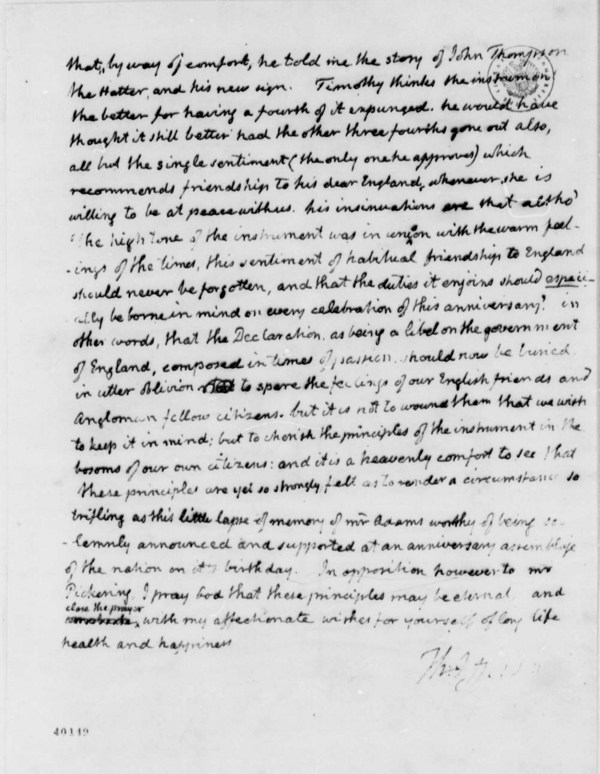 that, by way of comfort, he told me the story of John Thompson
the Hatter, and his new sign. Timothy thinks the instrument
the better for having a fourth of it expunged. he would have
thought it still better had the other three fourths gone out also,
all but the single sentiment (the only one he approves) which
recommends friendship to his dear England, whenever she is
willing to be at peace with us. his insinuations are that altho'
'the high tone of the instrument was in unison with the warm feel-
-ings of the times, this sentiment of habitual friendship to England
should never be forgotten, and that the duties it enjoins should especi-
-ally be borne in mind on every celebration of this anniversary.' in
other words, that the Declaration, as being a libel on the government
of England, composed in times of passion, should now be buried
in utter oblivion to spare the feelings of our English friends and
Angloman fellow citizens. but it is not to wound them that we wish
to keep it in mind; but to cherish the principles of the instrument in the
bosoms of our own citizens: and it is a heavenly comfort to see that
these principles are yet so strongly felt as to render a circumstance so
trifling as this little lapse of memory of mr Adams worthy of being so-
-lemnly announced and supported at an anniversary assemblage
of the nation on it's birthday. In opposition however to mr
Pickering, I pray god that these principles may be eternal and
close the prayer
with my affectionate wishes for yourself of long life
health and happiness
40149